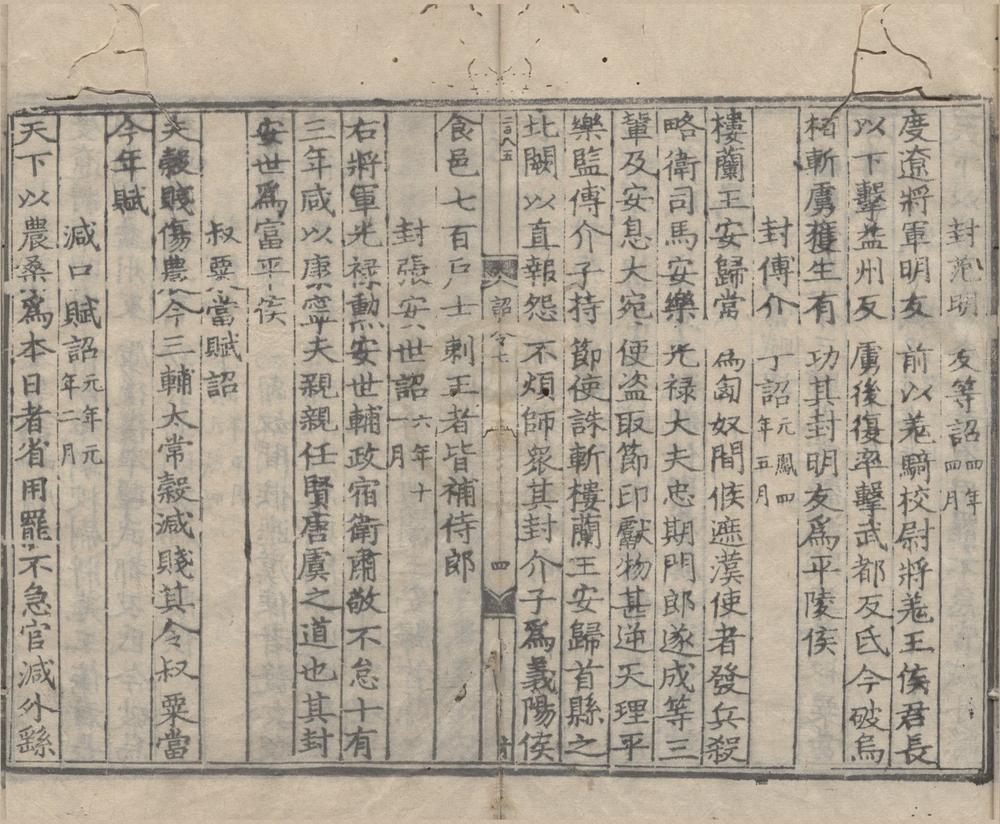 封范明友等詔四年四月
度遼將軍明友前以羌騎校尉將羌王侯君長
以下擊益州反虜後復率擊武都反氐今破烏
桓斬虜獲生有功其封明友爲平陵侯
封傅介丁詔元鳳四年五月
樓蘭王安歸當爲匈奴間候遮漢使者發兵殺
略衛司馬安樂光禄大夫忠期門郎遂成等三
輩及安息大宛使盗取節印獻物甚逆天理平
樂監傅介子持節使誅斬樓蘭王安歸首縣之
北闕以直報怨不煩師衆其封介子爲義陽侯
詔令七
四
食邑七百戶士刺王者皆補侍郎
封張安世詔六年十一月
右將軍光禄勲安世輔政宿衛肅敬不怠十有
三年咸以康寧夫親親任賢唐虞之道也其封
安世爲富平侯
叔粟當賦詔
夫穀賤傷農今三輔太常穀減賤其令叔粟當
今年賦
減口賦詔元年元年二月
天下以農桑爲本日者省用罷不急官減外繇